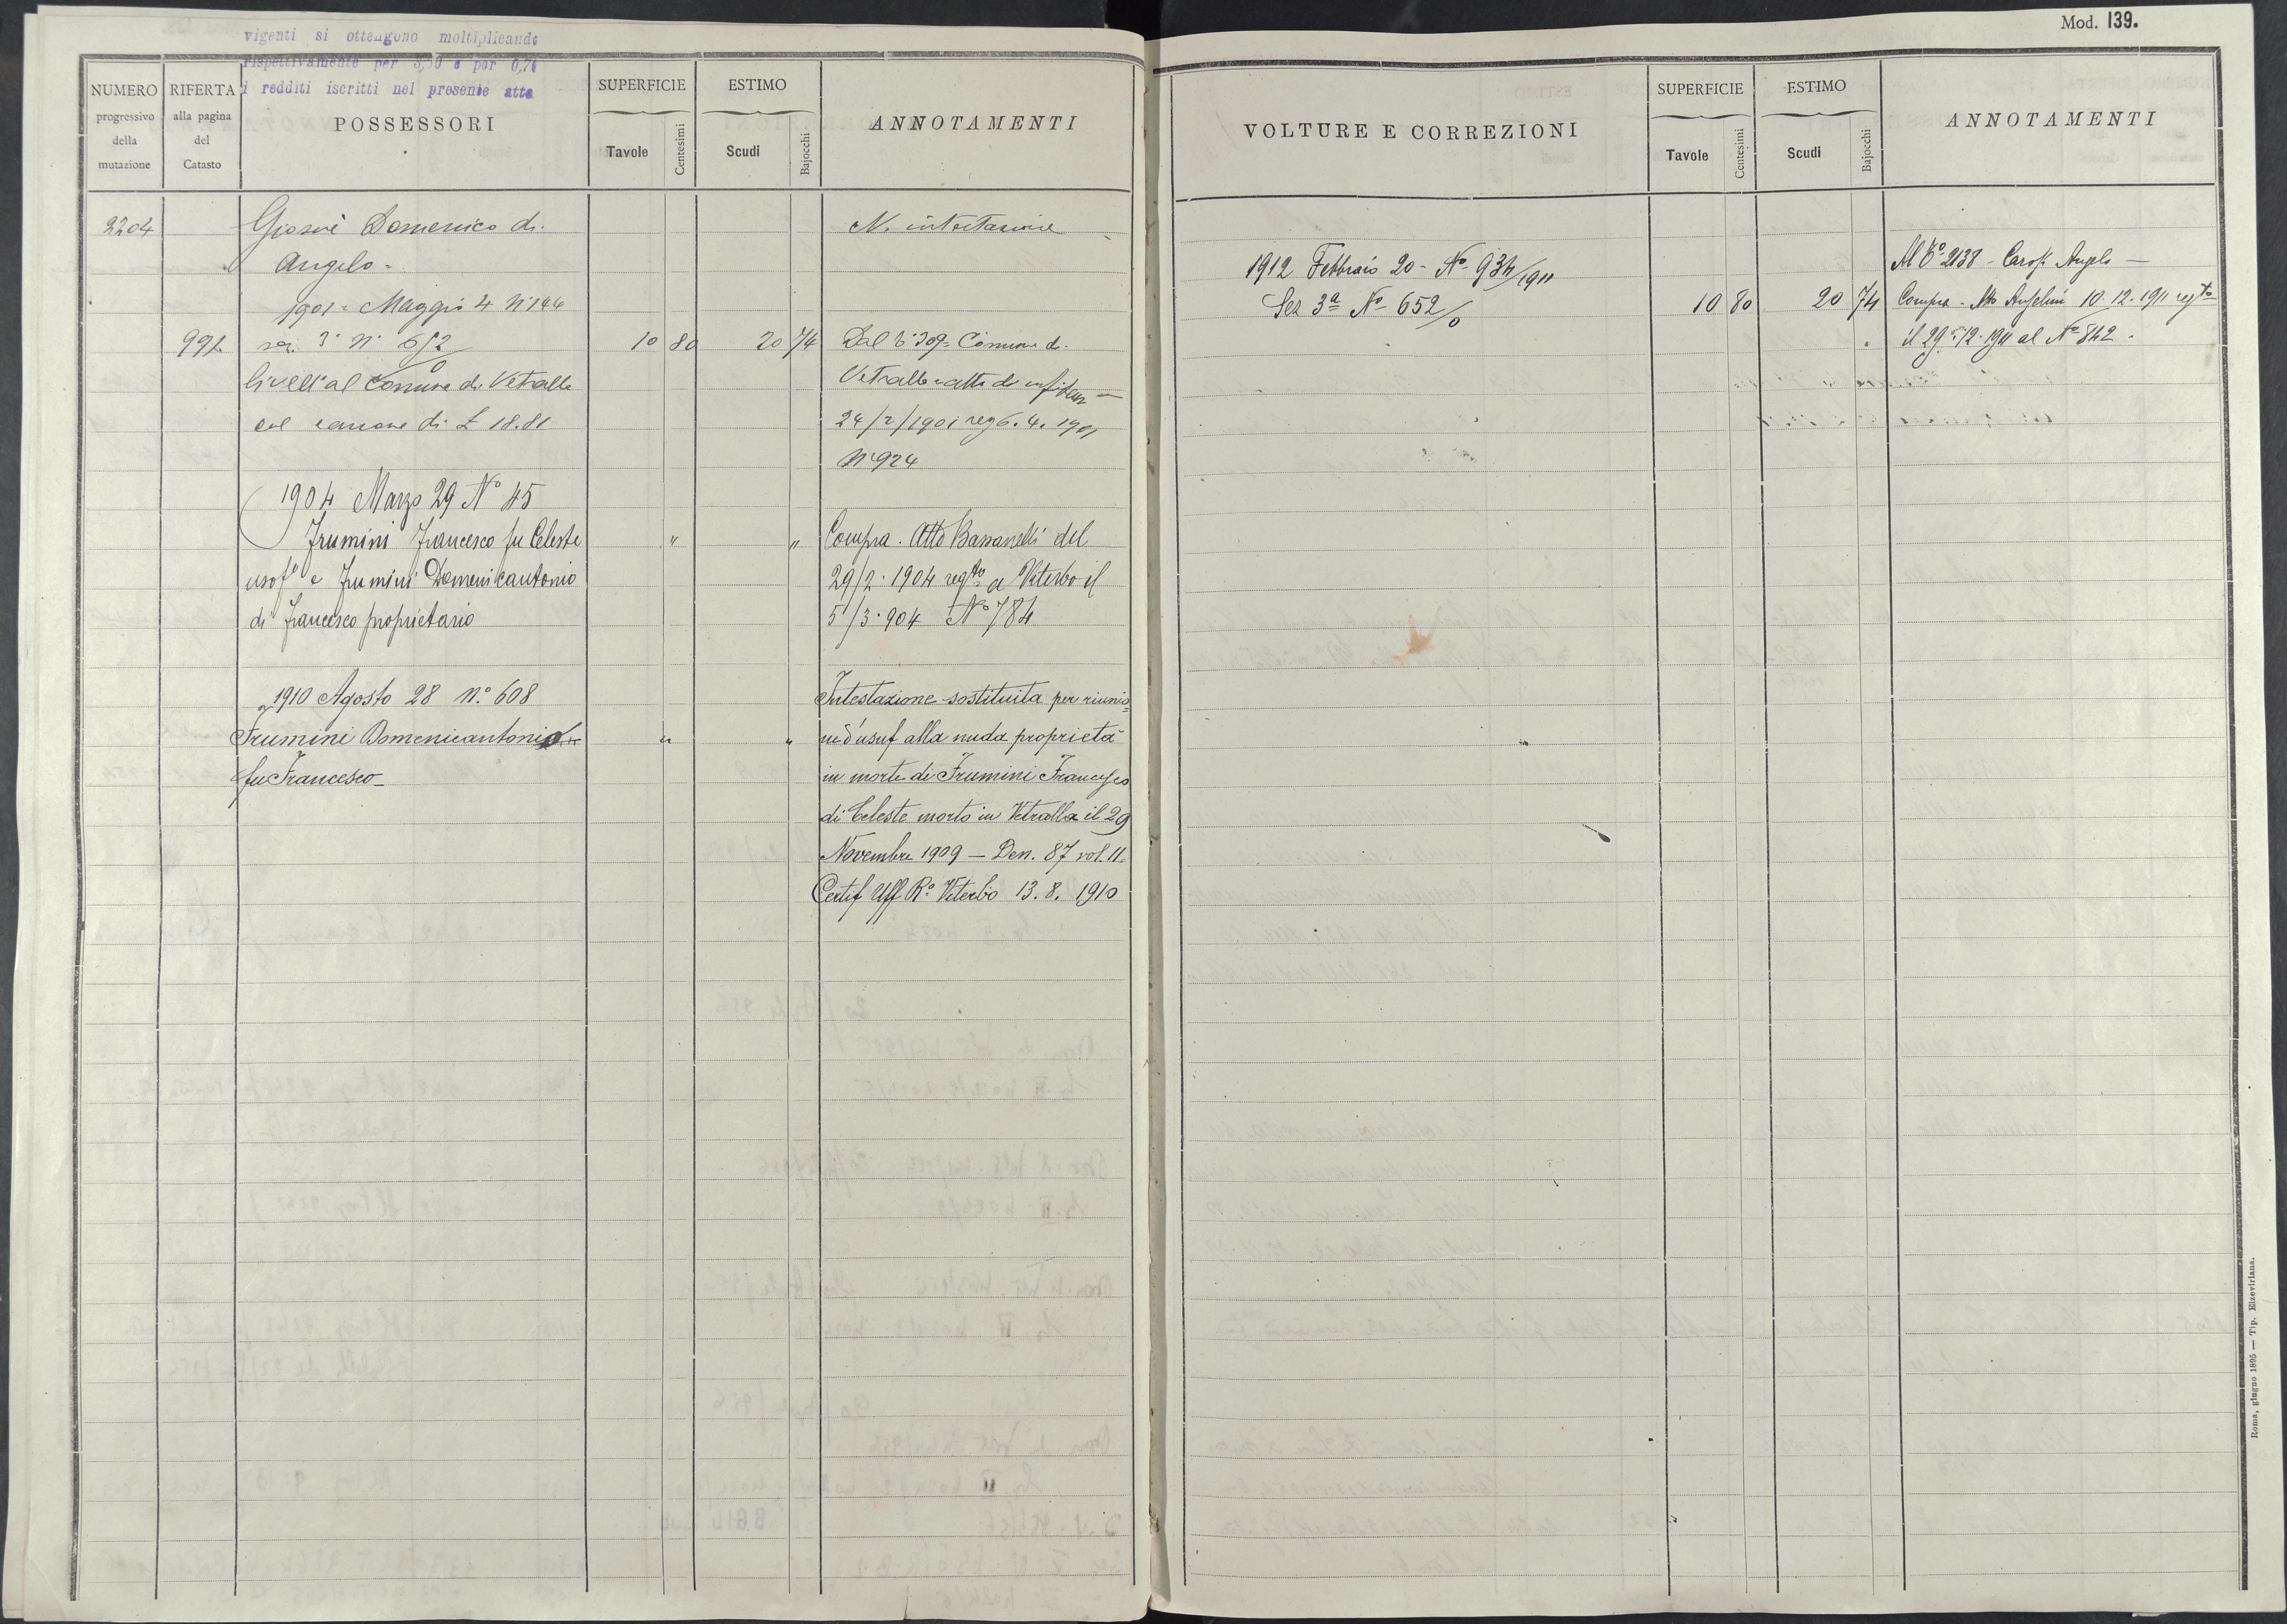 Mod. 139.
vigenti si ottengono moltiplicando
rispettivamente per 3,50 e per 0,70
i redditi iscritti nel presente atto
NUMERO progressivo della mutazione
RIFERTA alla pagina del Catasto
POSSESSORI
SUPERFICIE
Tavole Centesimi
ESTIMO
Scudi Bajocchi
ANNOTAMENTI
2204 Giosuè Domenico di N. intestazione
Angelo -
1901 = Maggio 4 N° 144
991 sez. 3ª N° 652/0 10 80 20 74 Dal 309 = Comune di
livell° al Comune di Vetralla Vetralla = atto di
col canone di £ 18.81 24/2/1901 reg 6. 4. 1901
N° 924
1904 Marzo 29 N° 45
Frumini Francesco fu Celeste " " Compra. Atto Bassanelli del
usof° e Frumini Domenicantonio 29/2. 1904 reg.to a Viterbo il
di Francesco proprietario 5/3. 904 N° 784
1910 Agosto 28 N.° 608 Intestazione sostituita per riunio=
Frumini Domenicantonio " " ne d'usuf alla nuda proprietà
fu Francesco - in morte di Frumini Francesco
di Celeste morto in Vetralla il 29
Novembre 1909 — Den. 87 vol. 11.
Certif Uff R.° Viterbo 13. 8. 1910
VOLTURE E CORREZIONI
SUPERFICIE
Tavole Centesimi
ESTIMO
Scudi Bajocchi
ANNOTAMENTI
1912 Febbraio 20 - N° 934/1911 Al 2138 - Angelo —
Sez 3ª N° 652/0 10 80 20 74 Compra - Atto Anselmi 10. 12. 1911 reg.to
il 29. 12. 1911 al N° 842.
Roma, giugno 1895 — Tip. Elzeviriana.